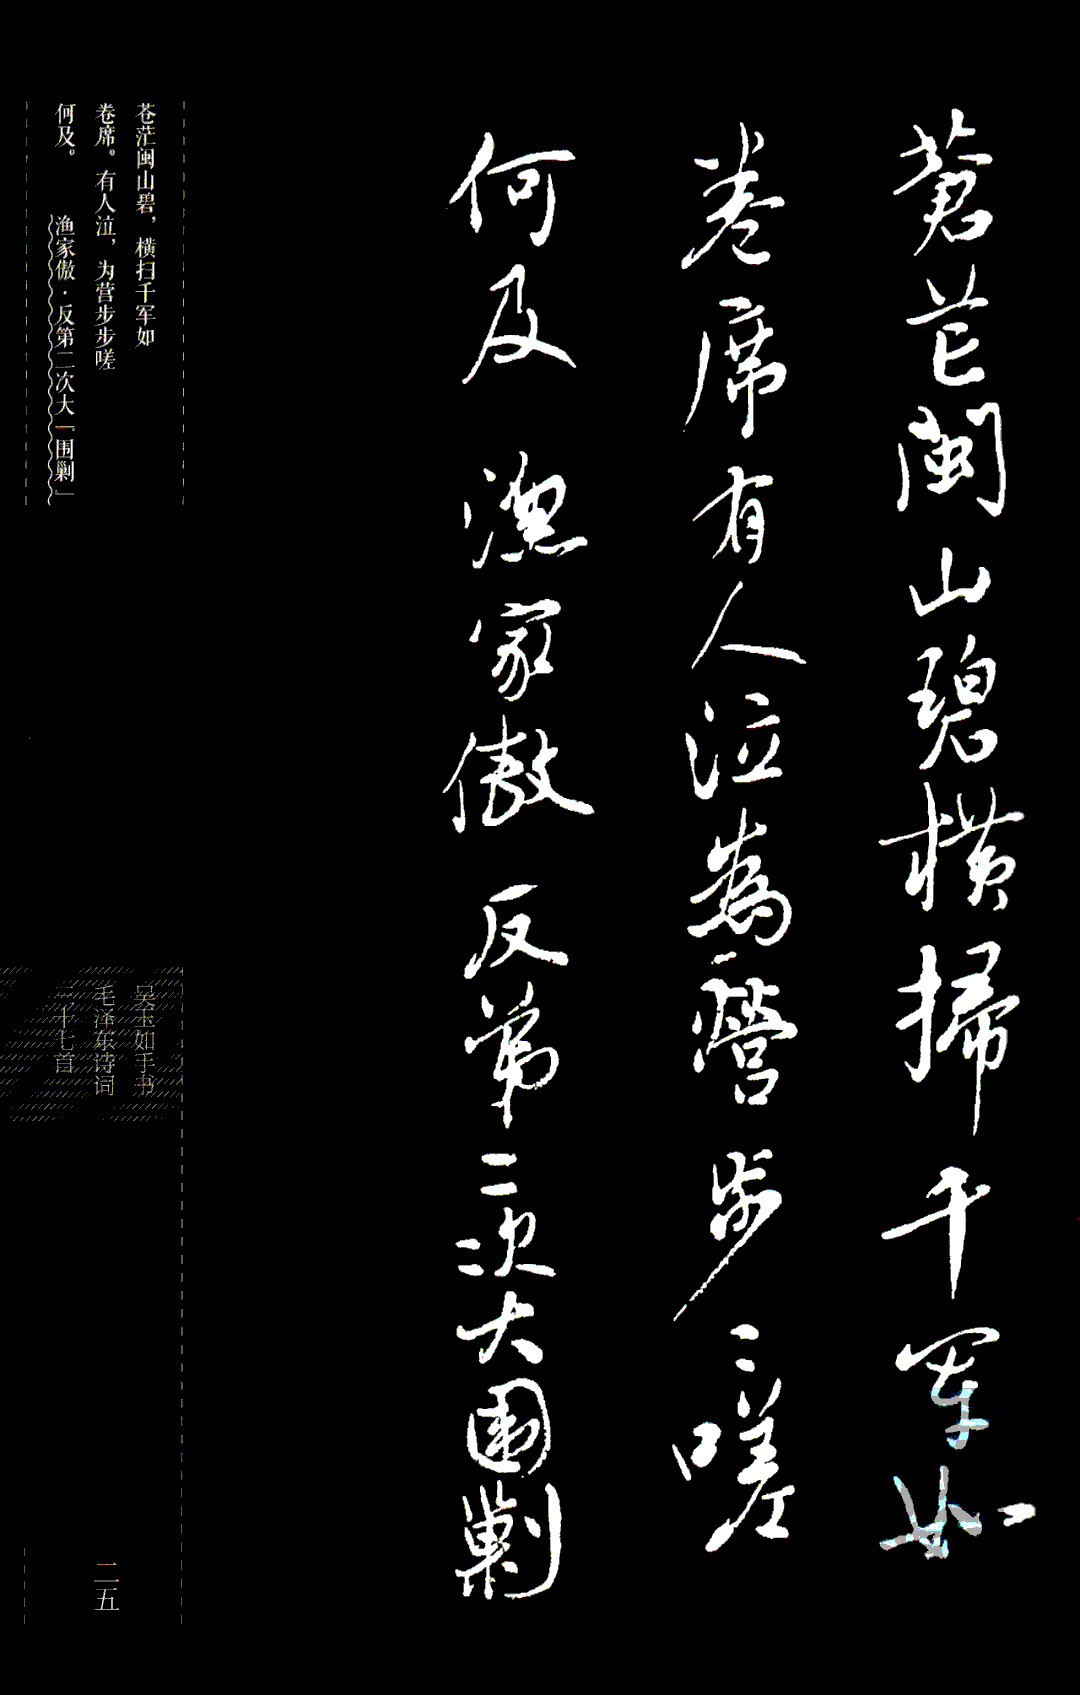 蒼茫閩山碧橫掃千軍如
卷席有人泣為營步〻嗟
何及 漁家傲 反第二次大圍剿
苍茫闽山碧，横扫千军如
卷席。有人泣，为营步步嗟
何及。 渔家傲·反第二次大「围剿」
吴玉如手书
毛泽东诗词
三十七首
二五